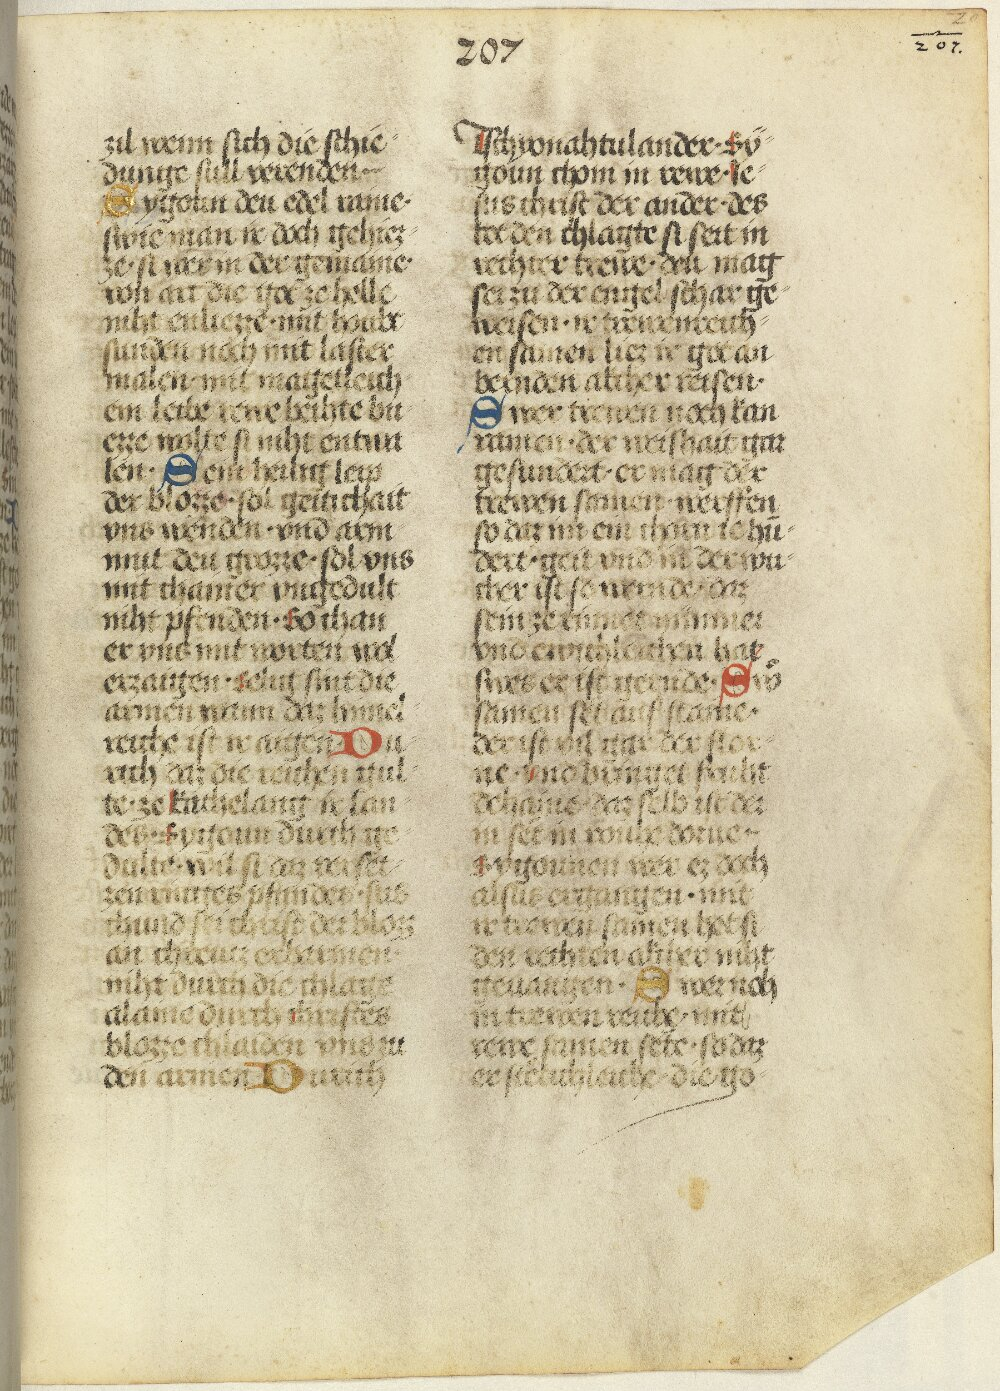 207
207.
zil wenn sich die schie⸗
dunge sull verenden
Sygoun deu edel raine·
swie man ir doch gehiez⸗
ze· si was in der gemaine·
von art die got ze helle
niht enliezze· mit houbt
sunden noch mit laster
malen· mit magetleich⸗
em leibe rewe beihte bu⸗
ezze wolte si niht entwa
len· Sein heilig leip
der blozze· sol geitichait
vns wenden· vnd arm
mut deu grozze· sol vns
mit chainer vngedult
niht pfenden· So chan
er vns mit worten wol
erzaigen· selig sint die
armen wann daz himel⸗
reiche ist ir aigen Du
rich daz die reichen gul⸗
te· ze kathelang ir lan⸗
des· Sygoun durch ge⸗
dulte· wil si daz verset⸗
zen ewiges pfandes· sus
chund sei christ der bloz
an chreutz erbarmen·
niht durch die chlage
alaine durch christes
blozze chlaiden vns zu
den armen Durich
Tschyonahtulander· Sy⸗
goun chom in rewe· Je⸗
sus christ der ander· des
tot den chlagte si seit in
rechter trewe· deu mag
sei zu der engel schar ge⸗
weisen· ir trewenreich⸗
en samen liez ir got an
beenden akcher reisen·
Swer trewen noch kan
ramen· der weishait gar
gesundert· er mag der
trewen samen· werffen
so daz im ein chorn ie hu⸗
dert· geit vnd in der wu⸗
cher ist so wernde· daz
sein zerinnet nimmer
vnd ewichleichen hat
swes er ist gernde· Swo
samen set auf staine·
der ist vil gar der flor⸗
ne· vnd bringet frucht
dehaine· daz selb ist der
in set in rouhe dorne
Sygounen wer ez doch
alsus ergangen· mit
ir trewen samen het si
den rechten akcher niht
geuangen· Swer noch
in trewen reiche· mit
rewe samen sete· so daz
er stetichleiche· die go⸗